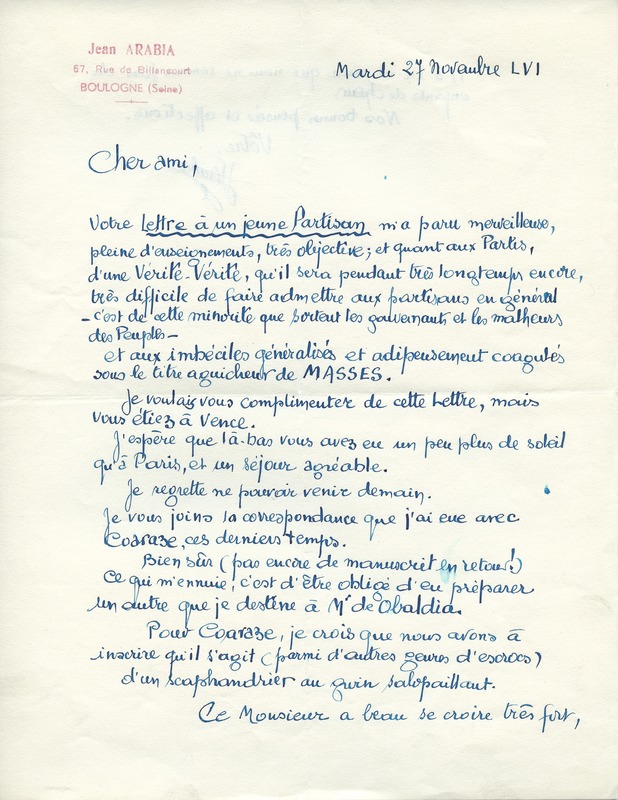 Jean ARABIA
67, Rue de Billancourt
BOULOGNE (Seine)
Mardi 27 Novembre LVI
Cher ami,
Votre Lettre à un jeune Partisan m'a paru merveilleuse,
pleine d'enseignements, très objective; et quant aux Partis,
d'une Vérité-Vérité, qu'il sera pendant très longtemps encore,
très difficile de faire admettre aux partisans en général
- c'est de cette minorité que sortent les gouvernants et les malheurs
des Peuples -
et aux imbéciles généralisés et adipensement coagulés
sous le titre aguicheur de MASSES.
Je voulais vous complimenter de cette Lettre, mais
vous étiez à Vence.
J'espère que là-bas vous avez eu un peu plus de soleil
qu'à Paris, et un séjour agréable.
Je regrette ne pouvoir venir demain.
Je vous joins la correspondance que j'ai eue avec
Coaraze, ces derniers temps.
Bien sûr (pas encore de manuscrit en retour!)
Ce qui m'ennuie, c'est d'être obligé d'en préparer
un autre que je destine à Mr de Obaldia.
Pour Coaraze, je crois que nous avons à
inscrire qu'il s'agit (parmi d'autres genres d'escrocs)
d'un scaphandrier au groin salopaillant.
Ce Monsieur a beau se croire très fort,